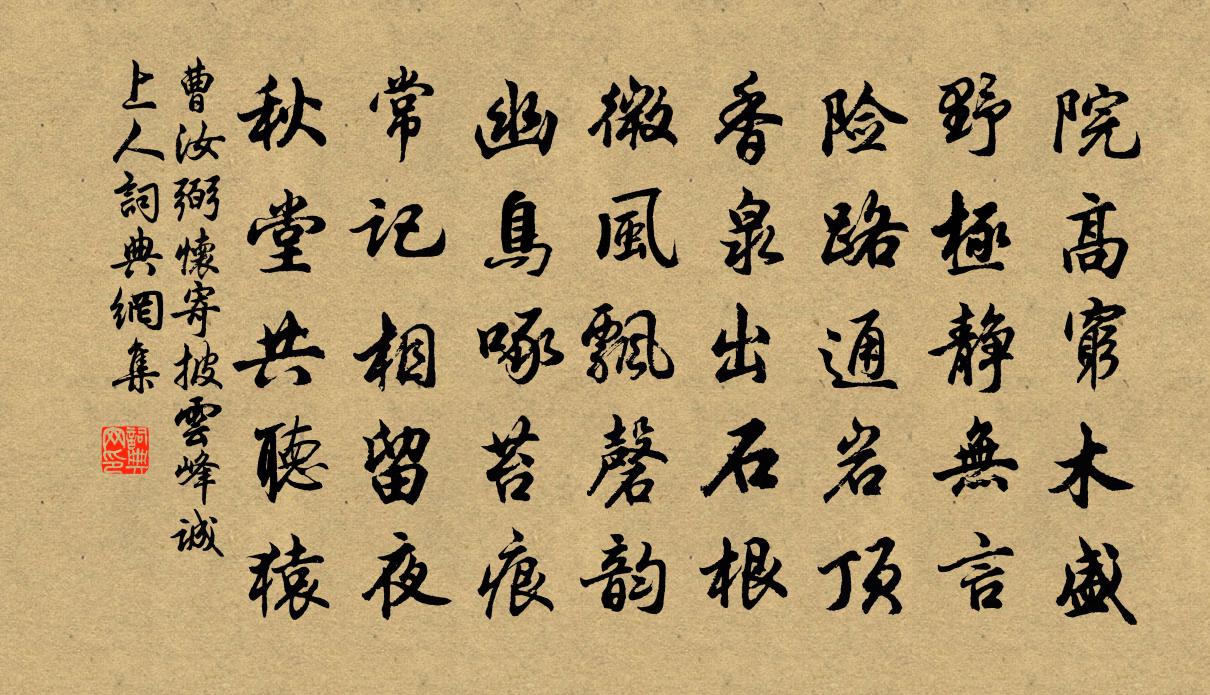 院高窮木盛
野極靜無言
险路通岩顶
香泉出石根
微風飄磬韵
幽鳥啄苔痕
常记相留夜
秋堂共聽猿
曹汝弼懷寄披雲峰诚
上人詞典網集
詞典
网印